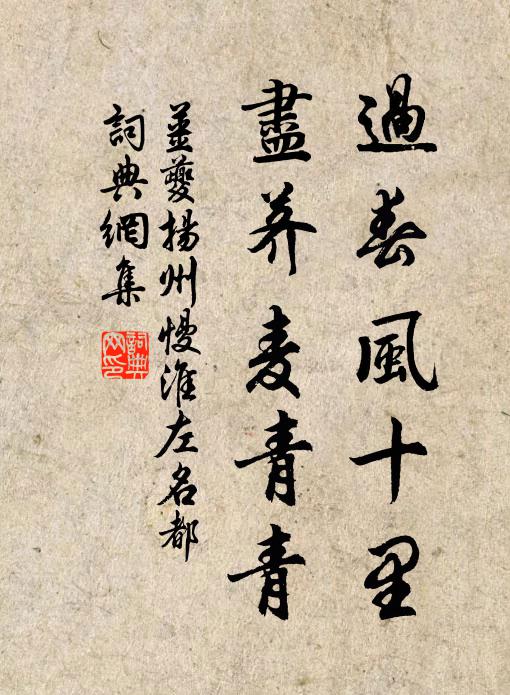 過春風十里
盡荠麦青青
姜夔揚州慢淮左名都
詞典網集
詞典
网印